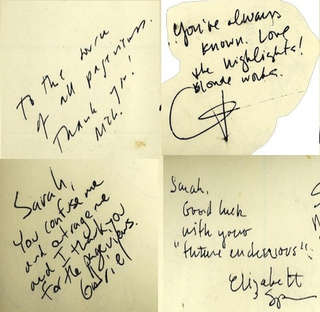 To the source
of all pageviews.
Thank you!
Nick.
You've always
known. Love
the highlights!
Blonde works.
Sarah,
You confuse me
and outrage me
and I thank you
For the pageviews.
Gabriel
Sarah.
Good luck
with your
"future endeavors".
Elizabeth